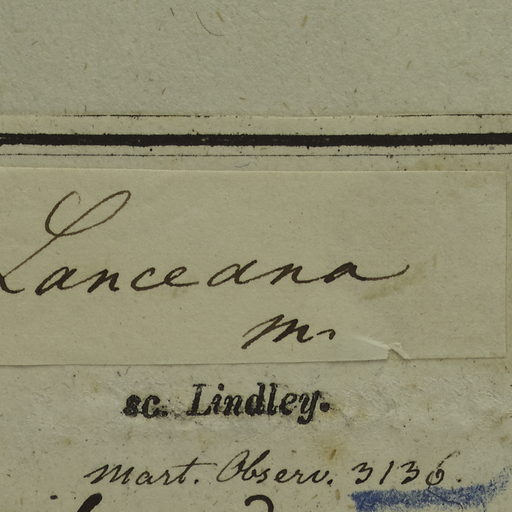 Lanceana
m.
sc. Lindley.
Mart. Observ. 3136.